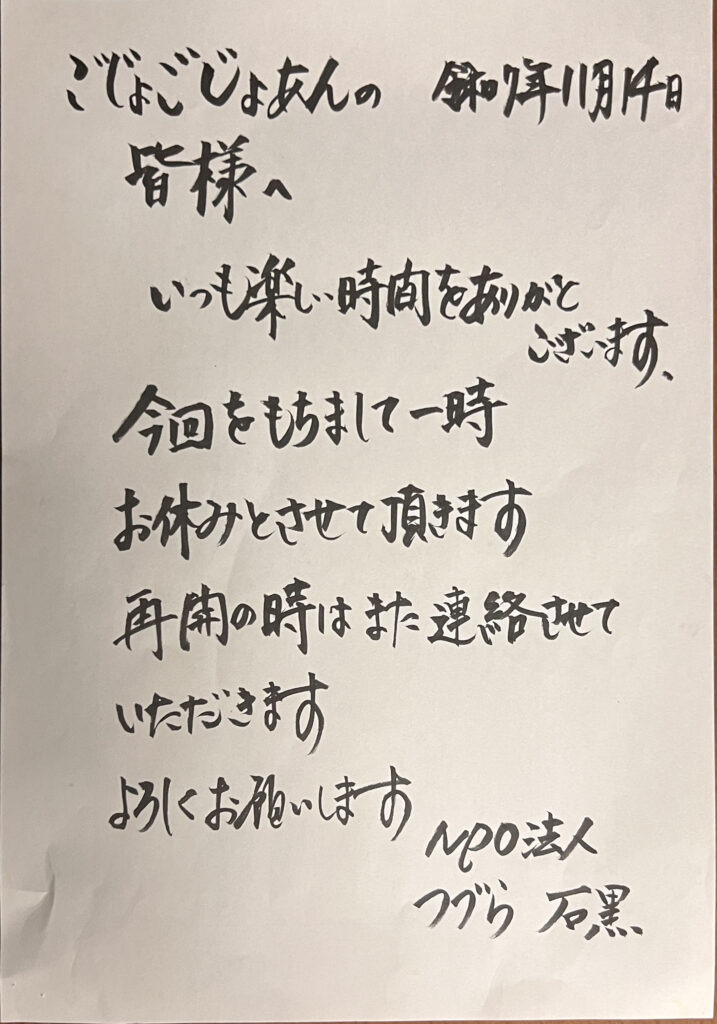 ごじょごじょあんの 令和7年11月14日
皆様へ
いつも楽しい時間をありがと
ございます、
今回をもちまして一時
お休みとさせて頂きます
再開の時はまた連絡させて
いただきます
よろしくお願いします
NPO法人
つづら 石黒